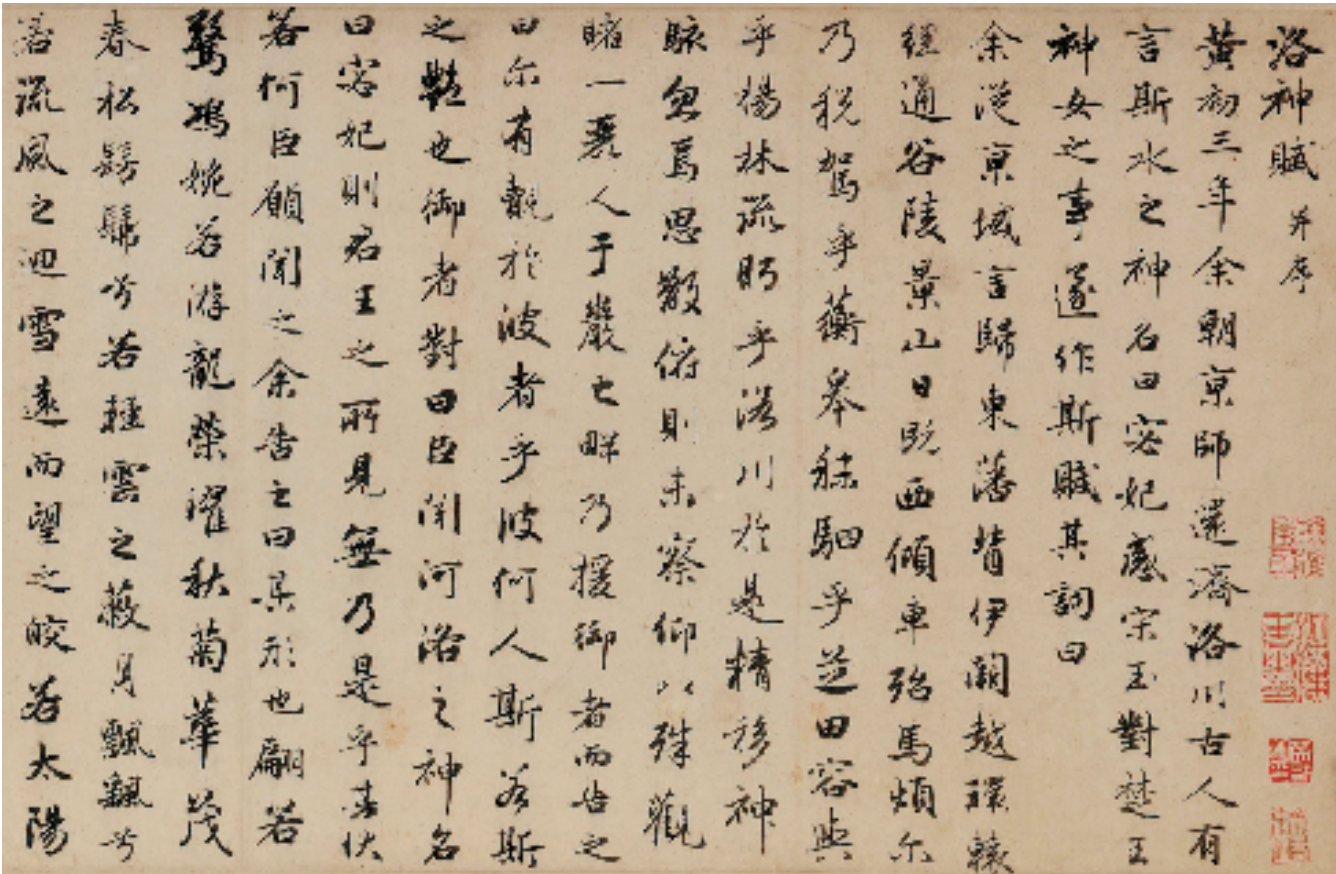 洛神賦并序
黃初三年余朝京師還濟洛川古人有
言斯水之神名曰宓妃感宋玉對楚王
神女之事遂作斯賦其詞曰
余從京城言歸東藩背伊闕越轘轅
經通谷陵景山日既西傾車殆馬煩尔
乃稅駕乎蘅皋秣駟乎芝田容與
乎楊林流眄乎洛川於是精移神
駭忽焉思散俯則未察仰以殊觀
睹一麗人于巖之畔乃援御者而告之
曰尔有覿於彼者乎彼何人斯若斯
之豔也御者對曰臣聞河洛之神名
曰宓妃則君王之所見無乃是乎其狀
若何臣願聞之余告之曰其形也翩若
驚鴻婉若游龍榮濯秋菊華茂
春松髣髴兮若輕雲之蔽月飄颻兮
若流風之迴雪遠而望之皎若太陽